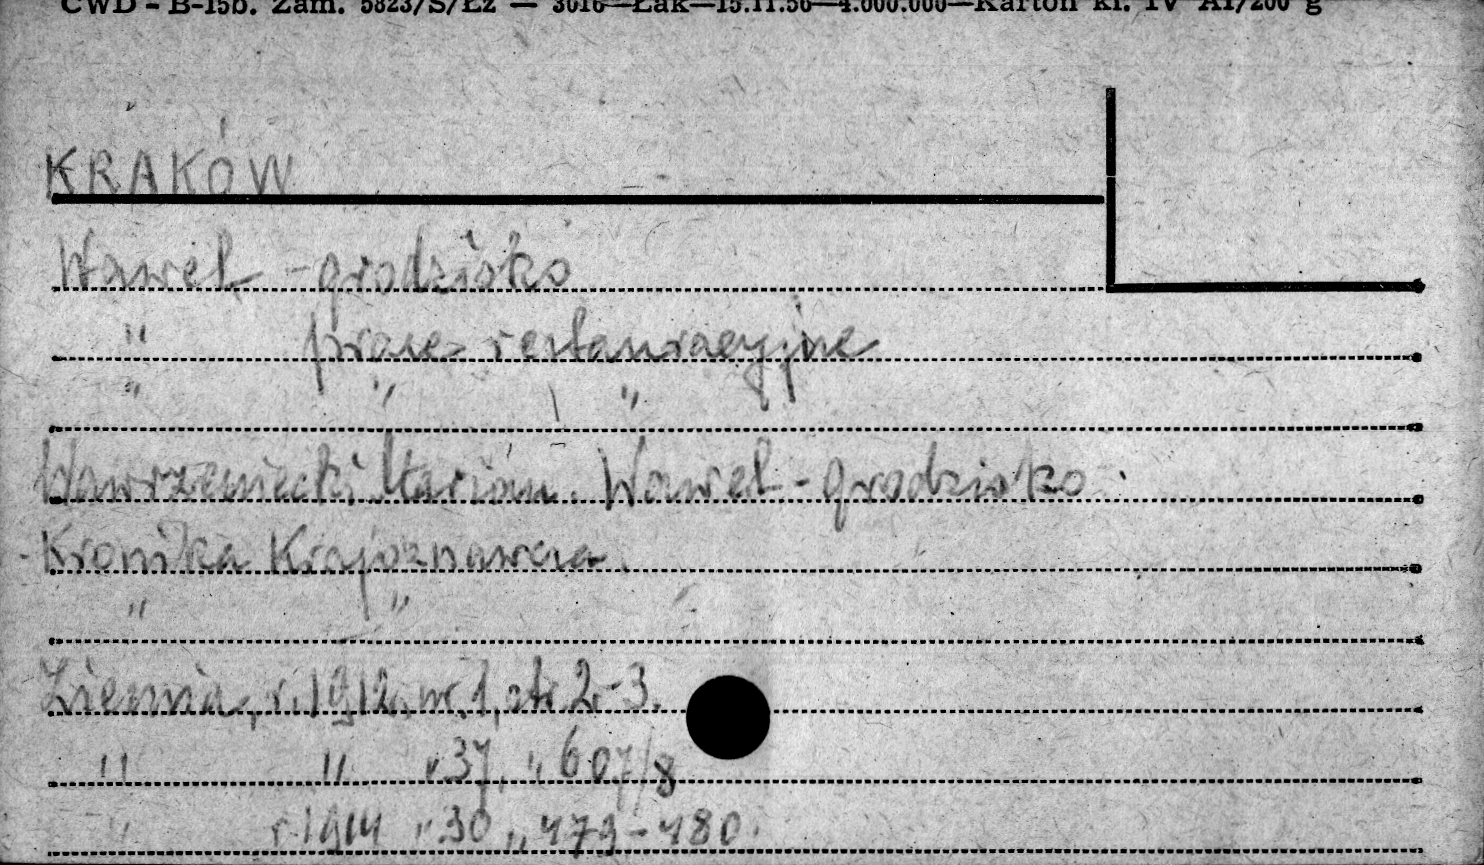 CWD - B-15b. Zam. 5823/S/Łz — 3016—Łak—15.11.56—4.000.000—Karton kl. IV A1/200 g
KRAKÓW
Wawel - grodzisko
" prace restauracyjne
" " "
Wawrzeniecki Marian. Wawel - grodzisko.
Kronika Krajoznawcza.
" "
Ziemia, r. 1912, nr. 1, str. 2-3.
" " " 37, " 607/8
" r. 1914 " 30 " 479-480.